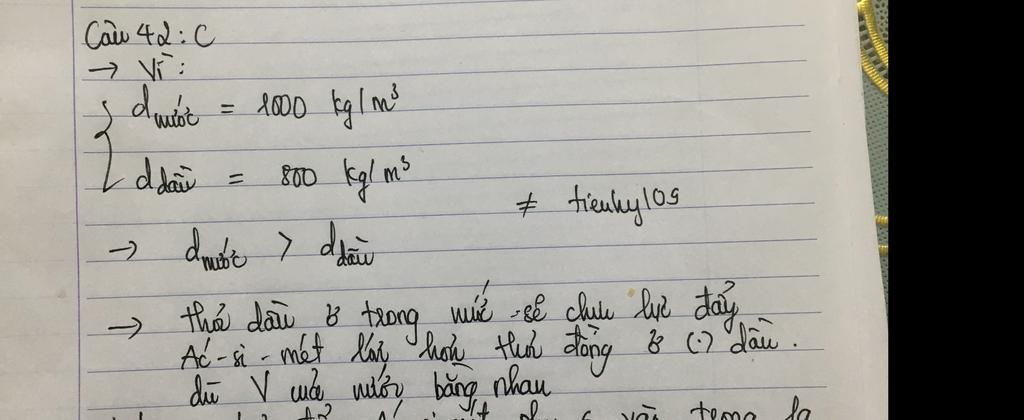 Câu 42: C
→ Vì:
d nước = 1000 kg/m³
d dầu = 800 kg/m³
≠ tienhy109
→ d nước > d dầu
→ thả dầu ở trong nước sẽ chịu lực đẩy
Ác-si-mét lớn hơn thỏi đồng ở (.) dầu.
dù V của nước bằng nhau